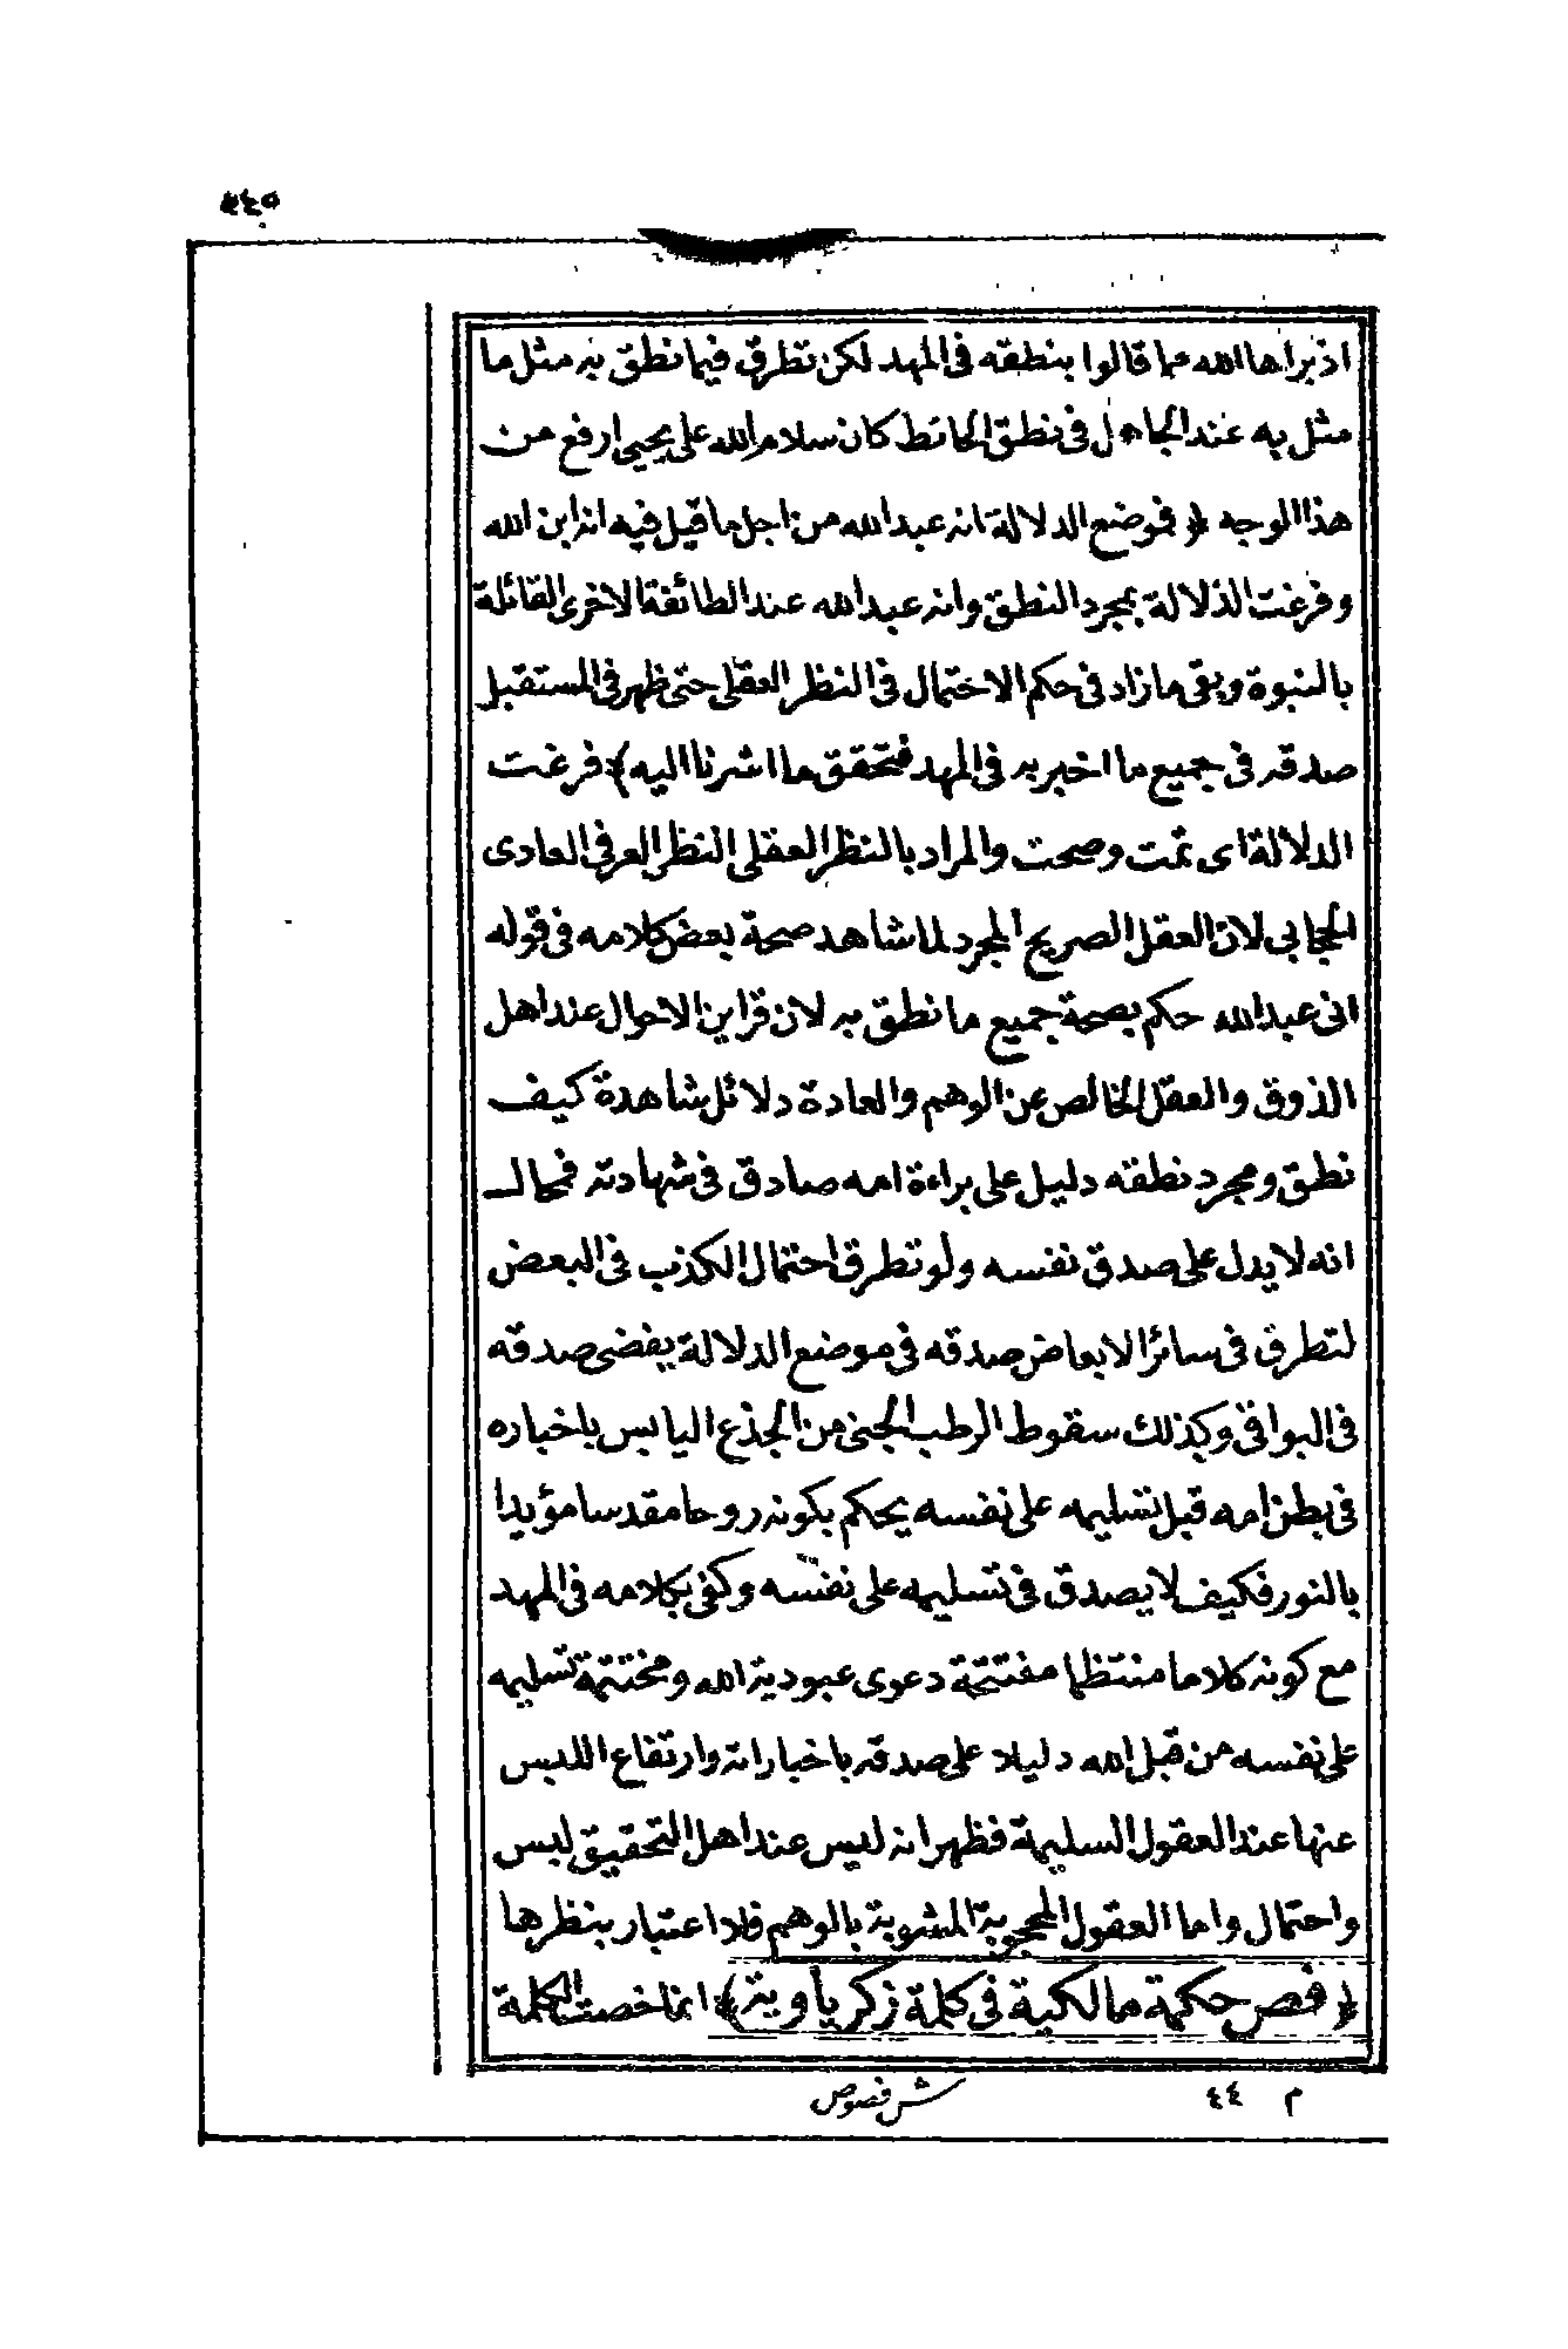 ٣٤٥
اذ براها الله مما قالوا بنطقه فى المهد لكن تطرق فيما نطق به مثل ما
مثل به عند الجاهل فى نطق الحائط كان سلام الله على يحيى ارفع من
هذا الوجه ﴿ فموضع الدلالة انه عبد الله من اجل ما قيل فيه انه ابن الله
وفرغت الدلالة بمجرد النطق وانه عبد الله عند الطائفة الاخرى القائلة
بالنبوة وبقى ما زاد فى حكم الاحتمال فى النظر العقلى حتى ظهر فى المستقبل
صدقه فى جميع ما اخبر به فى المهد فتحقق ما اشرنا اليه ﴾ فرغت
الدلالة اى تمت وصحت والمراد بالنظر العقلى النظر العرفى العادى
الحجابى لان العقل الصريح المجرد لما شاهد صحة بعض كلامه فى قوله
انى عبد الله حكم بصحة جميع ما نطق به لان قراين الاحوال عند اهل
الذوق والعقل الخالص عن الوهم والعادة دلائل شاهدة كيف
نطق ومجرد نطقه دليل على براءة امه صادق فى شهادته فمحال
انه لا يدل على صدق نفسه ولو تطرق احتمال الكذب فى البعض
لتطرق فى سائر الابعاض صدقه فى موضع الدلالة يفضى صدقه
فى البواقى وكذلك سقوط الرطب الجنى من الجذع اليابس باخباره
فى بطن امه قبل تسليمه على نفسه يحكم بكونه روحا مقدسا مؤيدا
بالنور فكيف لا يصدق فى تسليمه على نفسه وكفى بكلامه فى المهد
مع كونه كلاما منتظما مفتتحة دعوى عبودية الله ومختتمة تسليمه
على نفسه من قبل الله دليلا على صدقه باخباراته وارتفاع اللبس
عنها عند العقول السليمة فظهر انه ليس عند اهل التحقيق لبس
واحتمال واما العقول المحجوبة المشوبة بالوهم فلا اعتبار بنظرها
﴿ فص حكمة مالكية فى كلمة زكرياوية ﴾ انما خصت الكلمة
م ٤٤ ش فصوص